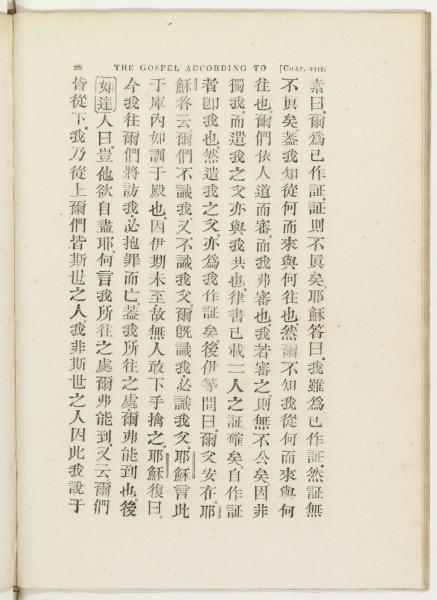 28 THE GOSPEL ACCORDING TO [CHAP. VIII.
素曰。爾為己作証。証則不眞矣。耶穌答曰。我雖為己作証。然証無
不眞矣。葢我知從何而來與何往也。然爾不知我從何而來與何
往也。爾們依人道而審。而我弗審也。我若審之。則無不公矣。因非
獨我。而遣我之父亦與我共也。律書己載二人之証確矣。自作証
者卽我也。然遣我之父。亦為我作証矣。後伊等問曰。爾父安在。耶
穌答云。爾們不識我。又不識我父。爾旣識我。必識我父。耶穌言此
于庫內如訓于殿也。因伊期未至。故無人敢下手擒之。耶穌復曰。
今我往。爾們將訪我。必抱罪而亡。葢我所往之處。爾弗能到也。後
如達人曰。豈他欲自盡耶。何言我所往之處爾弗能到。又云爾們
皆從下。我乃從上。爾們皆斯世之人。我非斯世之人。因此我說于